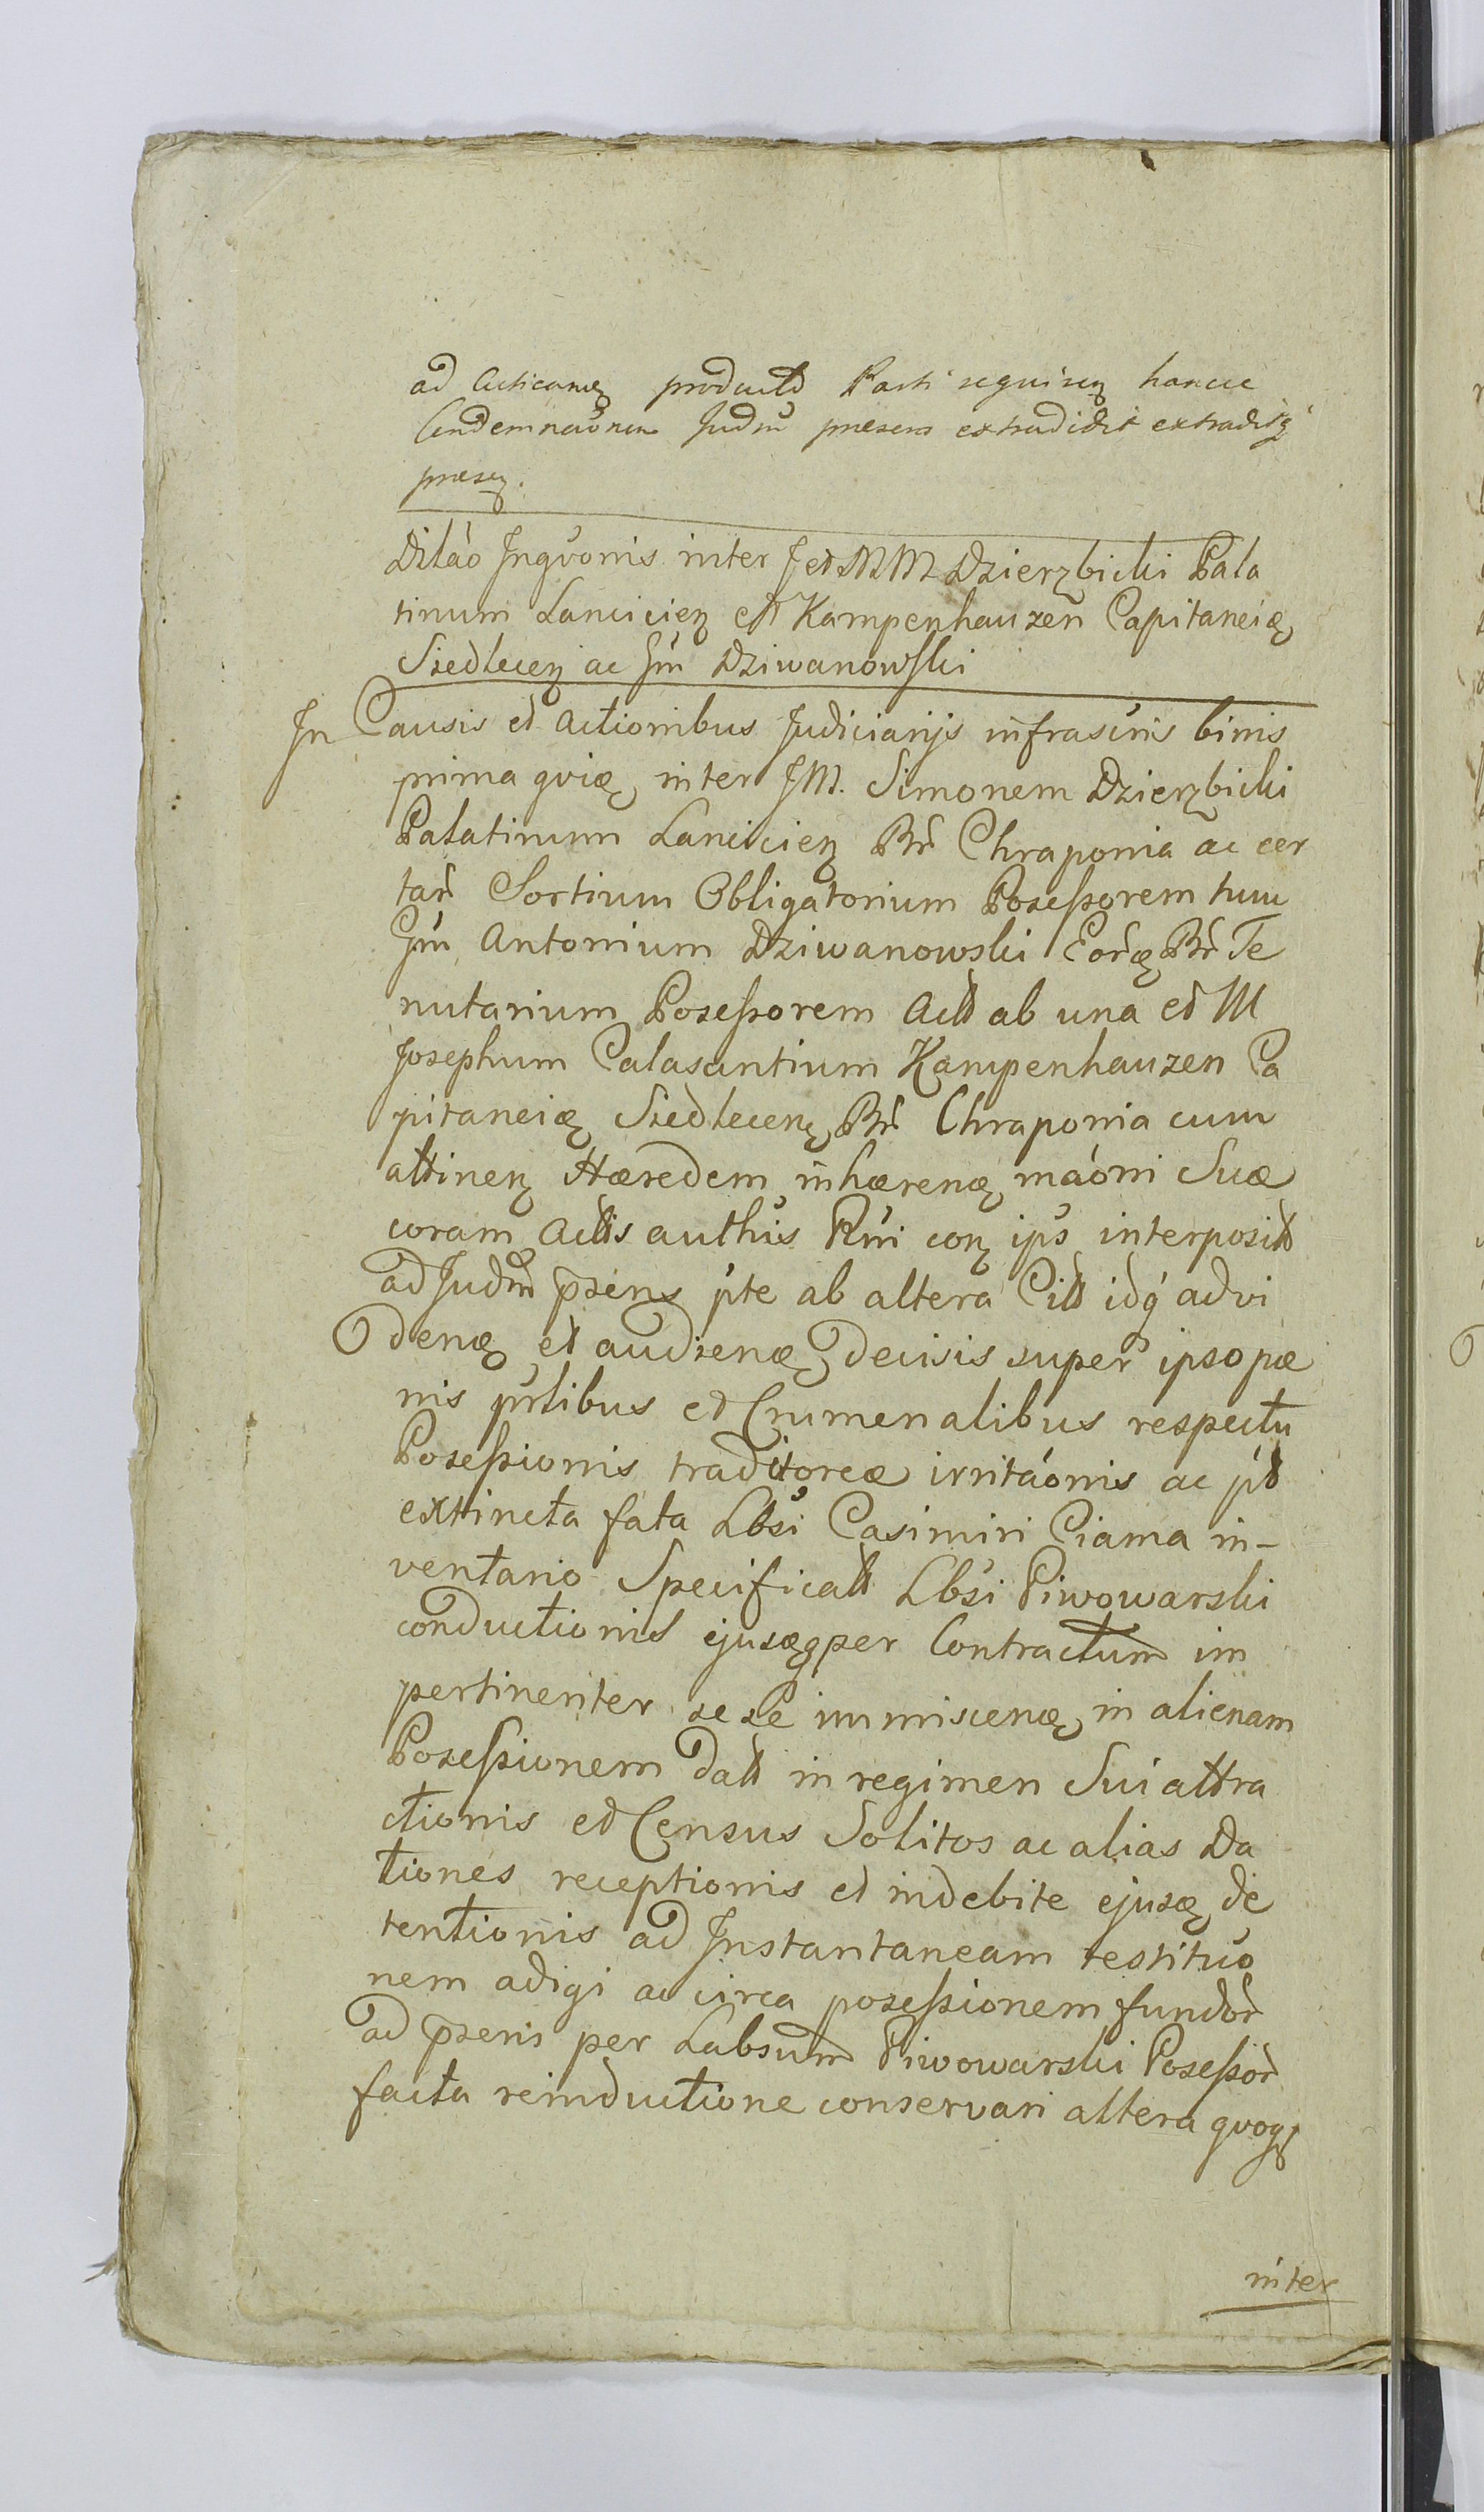 ad Acticanꝝ product Parti requirenꝝ hancce
Condemnaónem Judm̃ præsens extradidit extraditq́
præseꝝ.
Dilaó Inqvonis inter J et MM Dzierzbicki Pala
tinum Lancicieꝝ et Kampenhauzen Capitaneię
Siedleceꝝ ac Gm̃ Dziwanowski
In Causis et Actionibus Judiciarijs infrascris binis
prima qvię inter JM. Simonem Dzierzbicki
Palatinum Lancicieꝝ Br̃ Chraponia ac cer
tar̃ Sortium Obligatorium Poseßorem tum
Gm̃ Antonium Dziwanowski Eorę Br̃ Te
nutarium Poseßorem Actt ab una et M
Josephum Calasantium Kampenhauzen Ca
pitaneię Siedleceꝝ Br̃ Chraponia cum
attineꝝ Hæredem inhærenę máoni Suæ
coram Actis authús Rm̃i coꝝ ips interpositt
ad Judm̃ p̃sens pte ab altera Citt idq́ advi
denę et audienę decisis super ipso pæ
nis pnlibus et Crumenalibus respectu
Poseßionis traditoreæ irritáonis ac pt
extincta fata Lbsi Casimiri Ciama in-
ventario Specificatt Lbsi Piwowarski
conductionis ejusęq per Contractum im
pertinenter sese immiscenę in alienam
Poseßionem datt in regimen Sui attra
ctionis et Census Solitos ac alias Da
tiones receptionis et indebite ejusę de
tentionis ad Instantaneam restituó
nem adigi ac circa poseßionem fundor̃
ad p̃sens per Labsum Piwowarski Poseßor̃
facta reinductione conservari altera qvoq́
inter